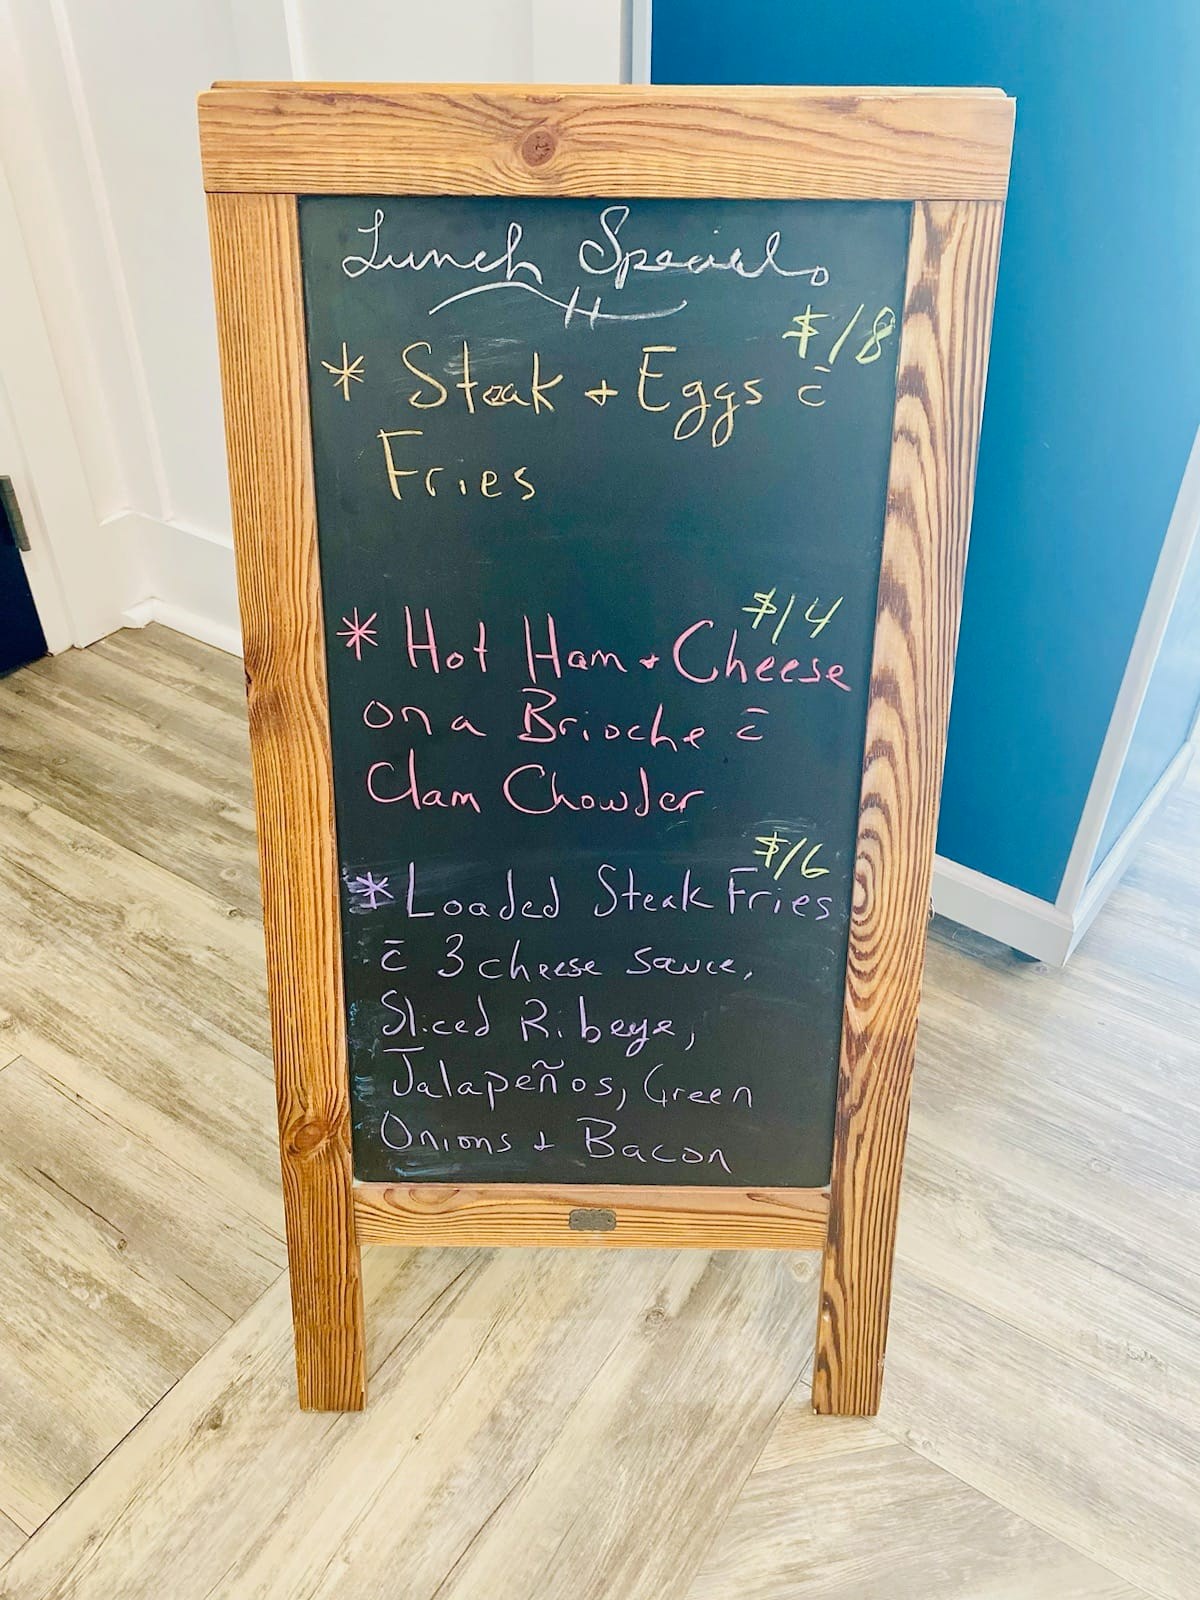 Lunch Specials
$18
* Steak + Eggs c̄
Fries
$14
* Hot Ham + Cheese
on a Brioche c̄
Clam Chowder
$16
* Loaded Steak Fries
c̄ 3 cheese sauce,
Sliced Ribeye,
Jalapeños, Green
Onions + Bacon